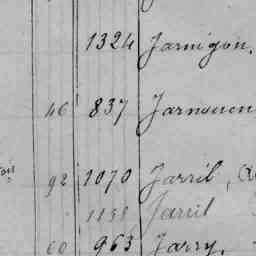 1324 Jarnigon,
46 837 Jarnouen
92 1070 Jarril,
Jarril
60 963 Jarry,